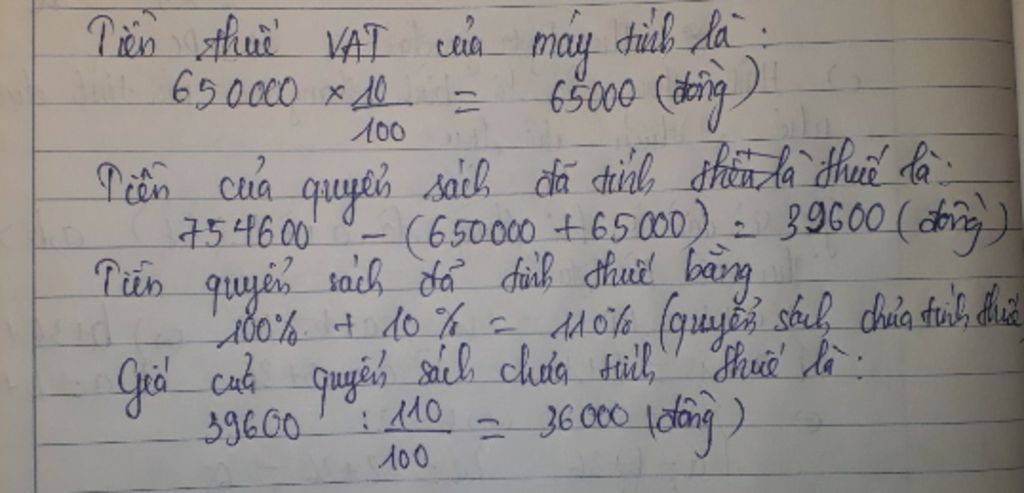 Tiền thuế VAT của máy tính là:
650000 × 10/100 = 65000 (đồng)
Tiền của quyển sách đã tính thuế là:
754600 - (650000 + 65000) = 39600 (đồng)
Tiền quyển sách đã tính thuế bằng
100% + 10% = 110% (quyển sách chưa tính thuế
Giá của quyển sách chưa tính thuế là:
39600 : 110/100 = 36000 (đồng)